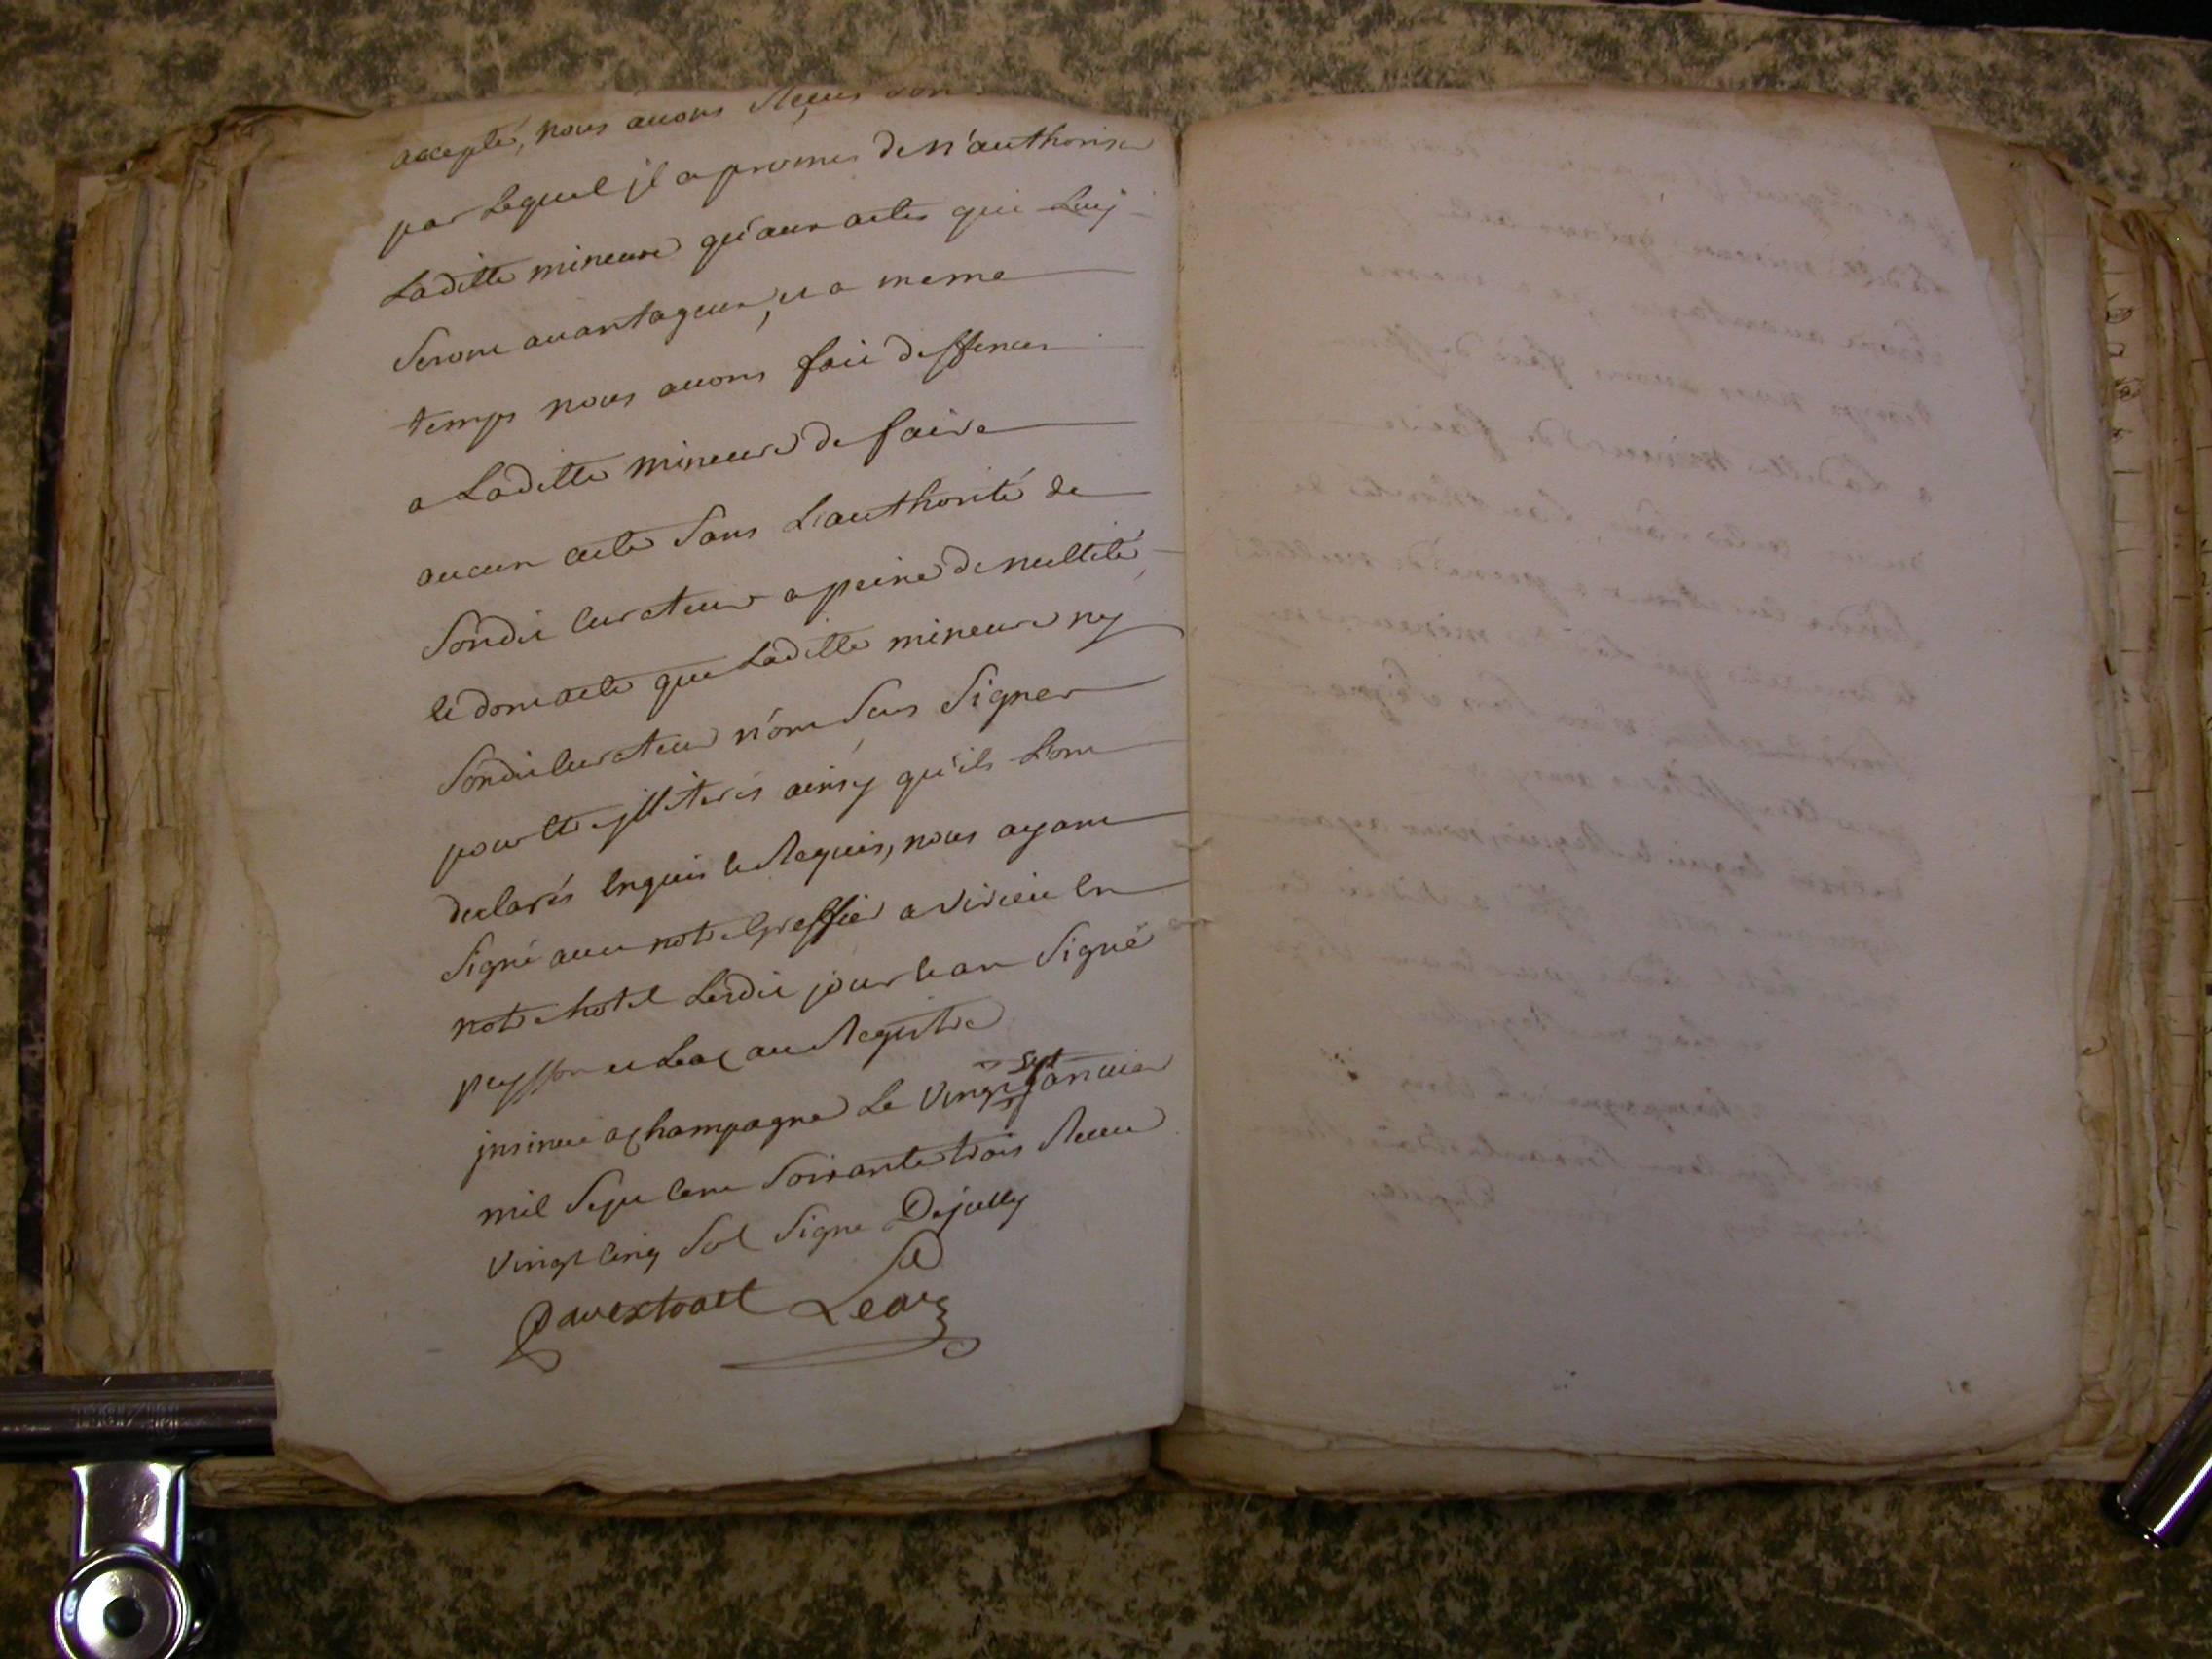 accepté, nous auons Reçus son
par Lequel jl a promis de n'authoriser
Laditte mineure qu'aux actes qui Luy
Seront auantageux, et a meme
temps nous auons fait deffences
a Laditte mineure de faire
aucun acte Sans L'authorité de
Sondit Curateur a peine de nullité,
et dont acte que Laditte mineure ny
Sondit Curateur n'ont Sceus Signer
pour etre jlliterés ainsy qu'ils L'ont
declarés Enquis et Requis, nous ayant
Signé auec notre Greffier a Virieu En
notre hotel Lesdit jour et an Signé
peysson et Leaz au Registre
jnsinué a Champagne Le Vingt sept Januier
mil Sept Cent Soixante trois Receu
Vingt Cinq Sol Signé Dejully
Par extrait Leaz